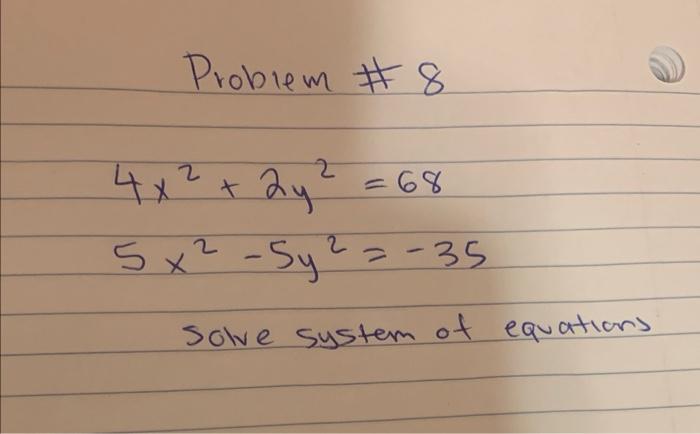 Problem # 8
4x² + 2y² = 68
5x² - 5y² = -35
Solve system of equations